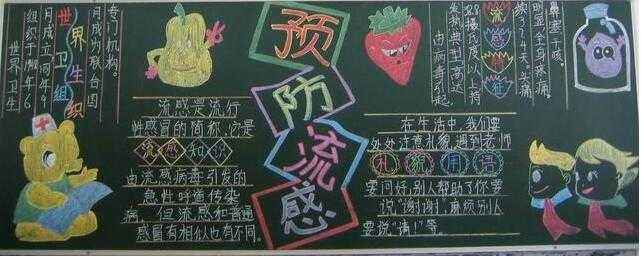 世界卫生组织
世界卫生
组织于1948年6
月成立,同年9
月成为联合国
专门机构。
预防流感
流感是流行
性感冒的简称,它是
流感知识
由流感病毒引发的
急性呼道传染
病,但流感和普通
感冒有相似也有不同。
流
由病毒引起
发热典型,高达
摄氏度以上,持
续3~4天,头痛
明显全身疼痛
鼻塞干咳。
在生活中,我们要
处处注意礼貌,遇到老师
礼貌用语
要问好,别人帮助了你要
说"谢谢",麻烦别人
要说"请!"等。